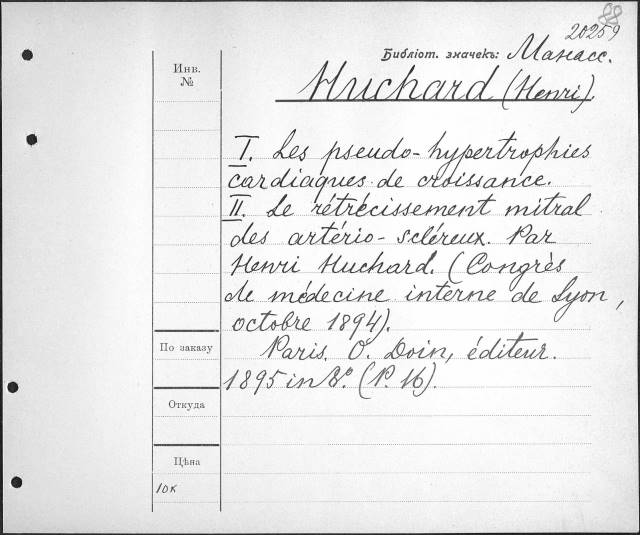 20259
Библіот. значекъ: Манасс.
Инв.
№
Huchard (Henri).
I. Les pseudo-hypertrophies
cardiaques de croissance.
II. Le rétrécissement mitral
des artério-scléreux. Par
Henri Huchard. (Congrès
de médecine interne de Lyon,
octobre 1894).
По заказу
Paris. O. Doin, éditeur.
1895 in 8º. (P. 16).
Откуда
Цѣна
10 к